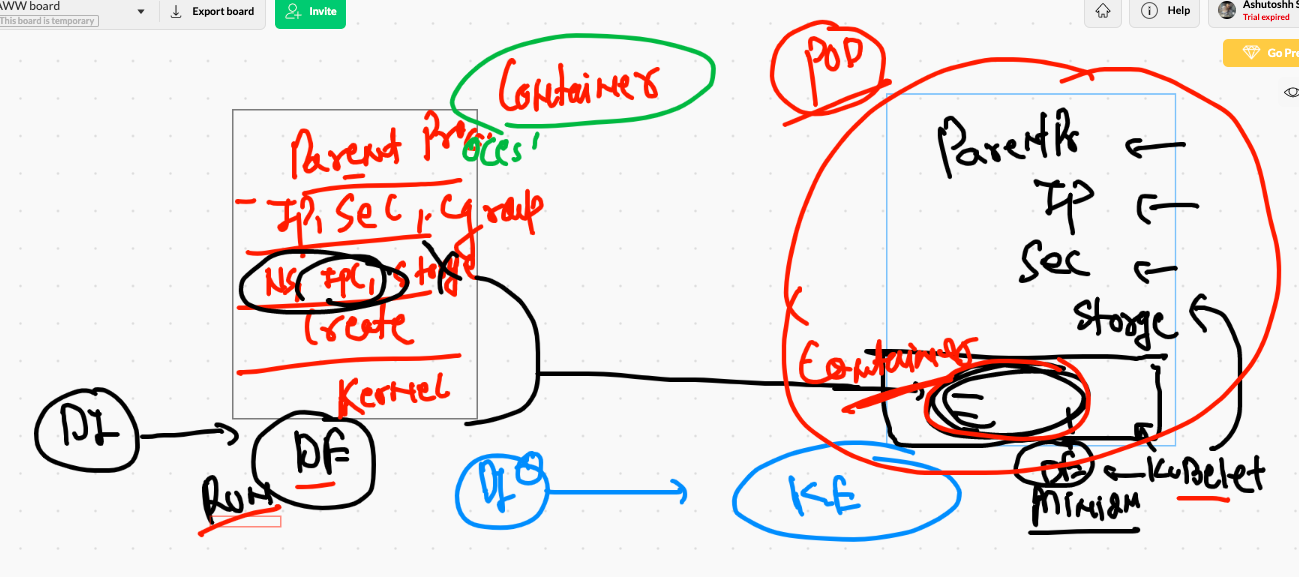 AWW board
This board is temporary
Export board
Invite
Help
Ashutoshh S
Trial expired
Go Pre
Container
Parent Process
IP, Sec, Cgroup
NS, IPC, Storge
Create
Kernel
DI
DE
RUN
DI
KE
POD
Parent Pr
IP
Sec
Storge
Container
DE
Kubelet
Minion